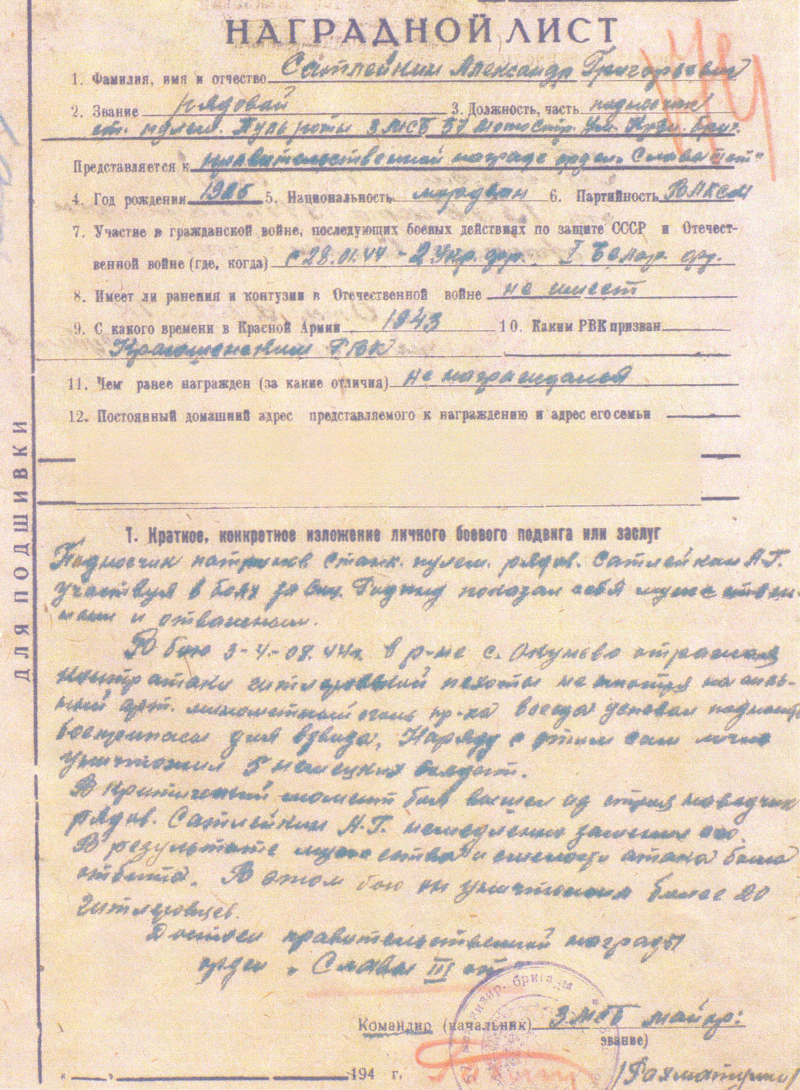 НАГРАДНОЙ ЛИСТ
1. Фамилия, имя и отчество Сатлейкин Александр Григорьевич
2. Звание рядовой 3. Должность, часть подносчик
ст. пулем. Пуль роты 3 МСБ 57 Мотостр. Ум. Кузн. Бриг.
Представляется к правительственной награде орден „Слава III ст"
4. Год рождения 1926 5. Национальность мордвин 6. Партийность ВЛКСМ
7. Участие в гражданской войне, последующих боевых действиях по защите СССР и Отечест-
венной войне (где, когда) с 28.01.44 - 2 Укр. фр. I Белор. фр.
8. Имеет ли ранения и контузии в Отечественной войне не имеет
9. С какого времени в Красной Армии 1943 10. Каким РВК призван
РВК
11. Чем ранее награжден (за какие отличия) не награждался
12. Постоянный домашний адрес представляемого к награждению и адрес его семьи
ДЛЯ ПОДШИВКИ
1. Краткое, конкретное изложение личного боевого подвига или заслуг
Подносчик патронов станк. пулем. рядов. Сатлейкин А.Г.
участвуя в боях за показал себя мужествен-
ным и отважным.
В бою 3-4-08.44г. в р-не с. Окуньево отражая
контратаки гитлеровской пехоты не смотря на силь-
ный арт. минометный огонь пр-ка всегда успевал подносить
боеприпасы для взвода, Наряду с этим сам лично
уничтожил 5 немецких солдат.
В критический момент боя вышел из строя наводчик
рядов. Сатлейкин А.Г. немедленно заменил его.
В результате мужества и смелости атака была
отбита. В этом бою он уничтожил более 20
гитлеровцев.
Достоин правительственной награды
орден „Слава III ст"
Командир (начальник) 3 МСБ майор:
звание)
„ " 194 г. /Рахматулин/